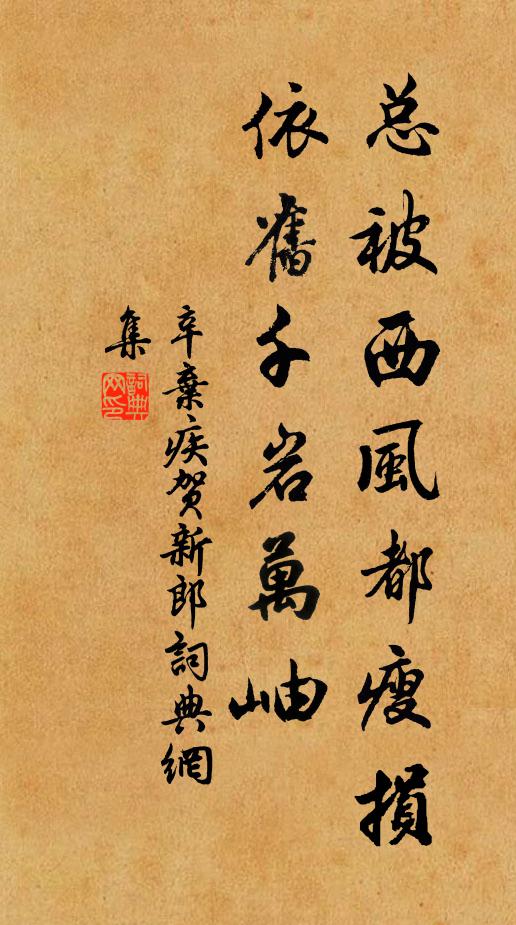 总被西風都瘦損
依舊千岩萬岫
辛棄疾贺新郎詞典網
集
詞典
网印